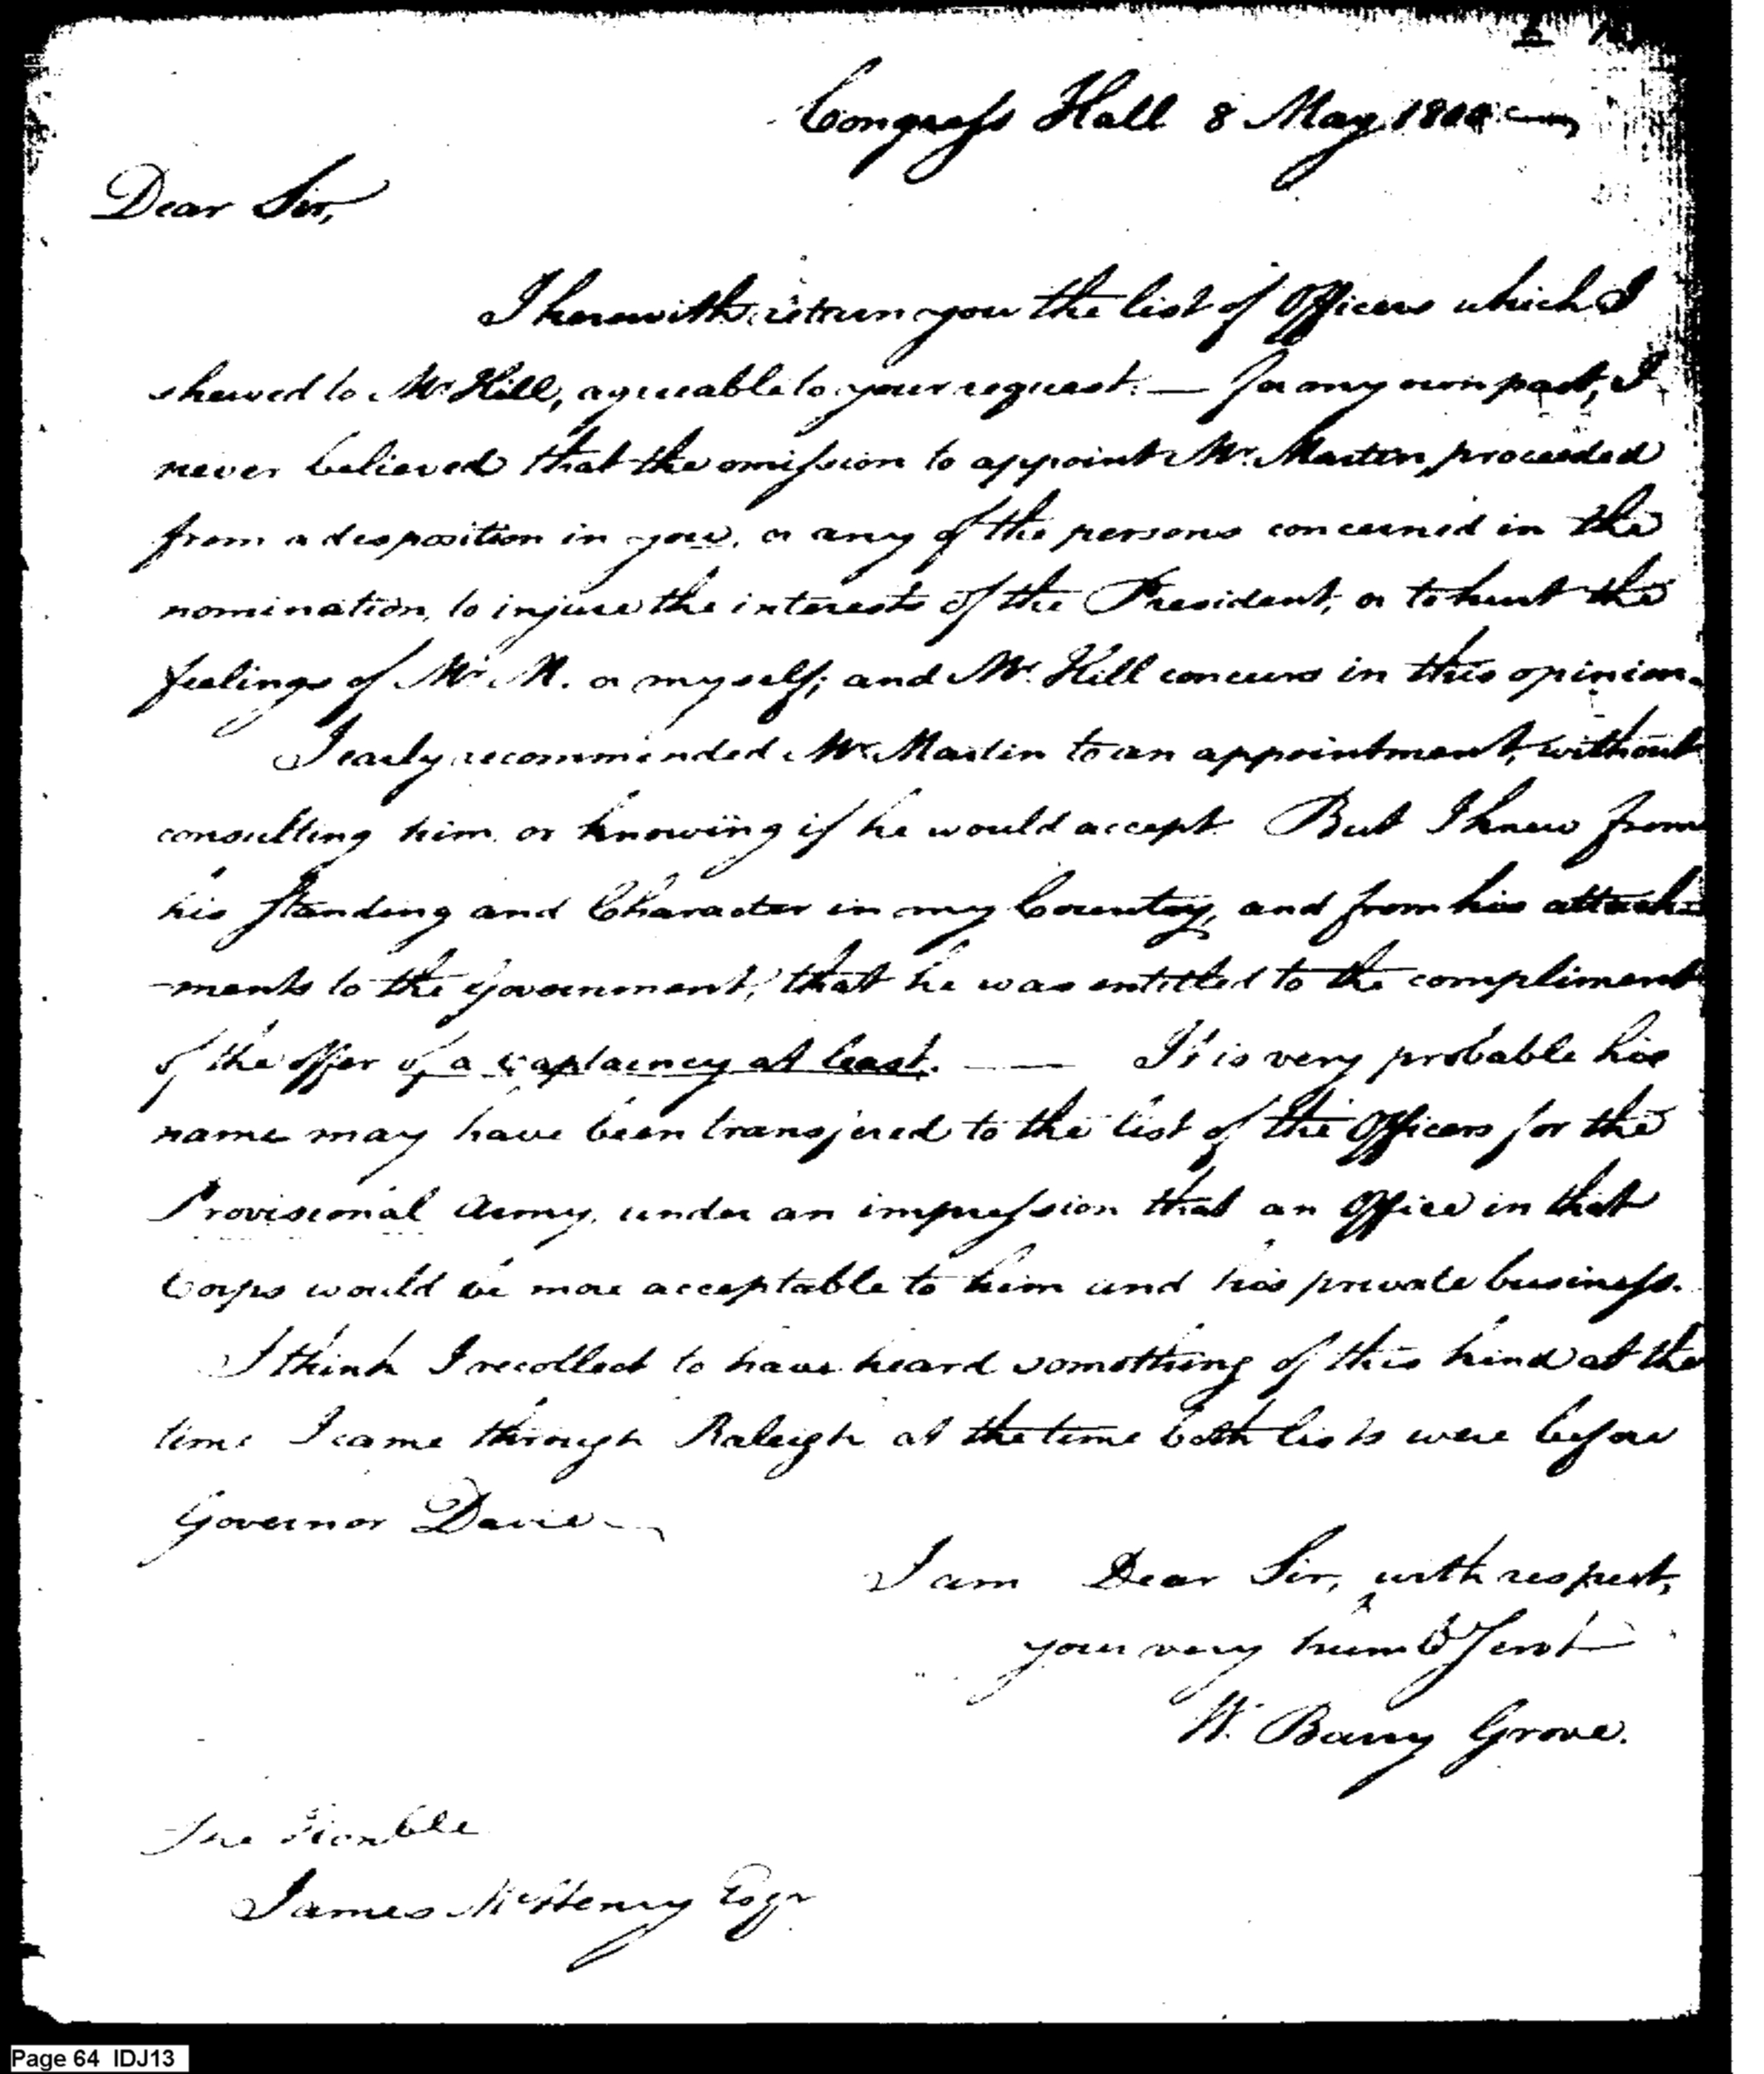 Congress Hall 8 May 1800
Dear Sir,
I herewith return you the list of Officers which I
shewed to Mr Hill, agreeable to your request. — for my own part, I
never believed that the omission to appoint Mr. Martin proceeded
from a disposition in you, or any of the persons concerned in the
nomination, to injure the interests of the President, or to hurt the
feelings of Mr. M. or myself; and Mr. Hill concurs in this opinion.
I early recommended Mr Martin to an appointment, without
consulting him, or knowing if he would accept. But I knew from
his standing and Character in my Country, and from his attach-
-ments to the Government, that he was entitled to the compliment
of the offer of a captaincy at least. — It is very probable his
name may have been transfered to the list of the Officers for the
Provisional Army, under an impression that an Office in that
Corps would be more acceptable to him and his private business.
I think I recollect to have heard something of this kind at the
time I came through Raleigh at the time both lists were before
Governor Davie
I am Dear Sir, with respect,
your very humb Servt
W. Barry Grove.
The Honble
James McHenry Esqr
Page 64 IDJ13